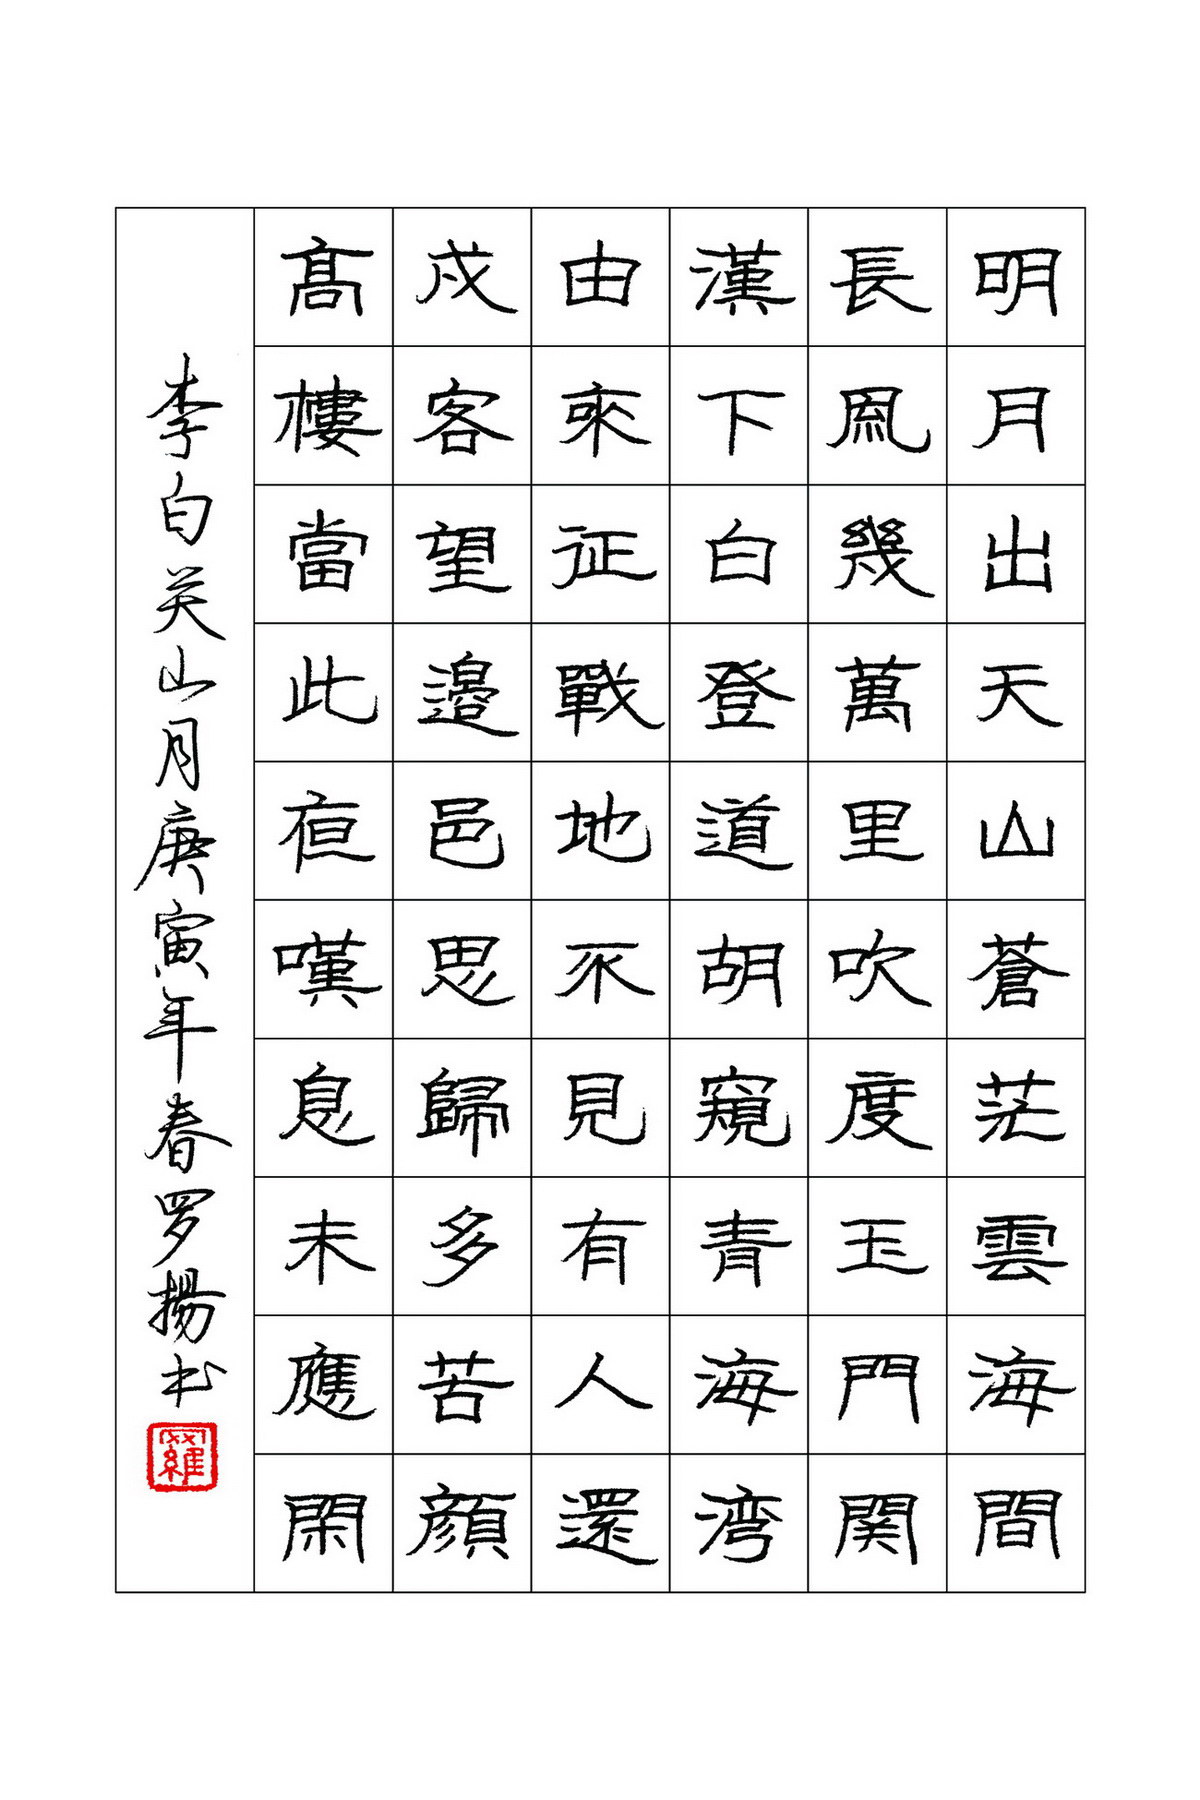 明月出天山蒼茫雲海間
長風幾萬里吹度玉門関
漢下白登道胡窺青海湾
由來征戰地不見有人還
戍客望邊邑思歸多苦顔
高樓當此夜嘆息未應閑
李白关山月庚寅年春罗揚书
羅